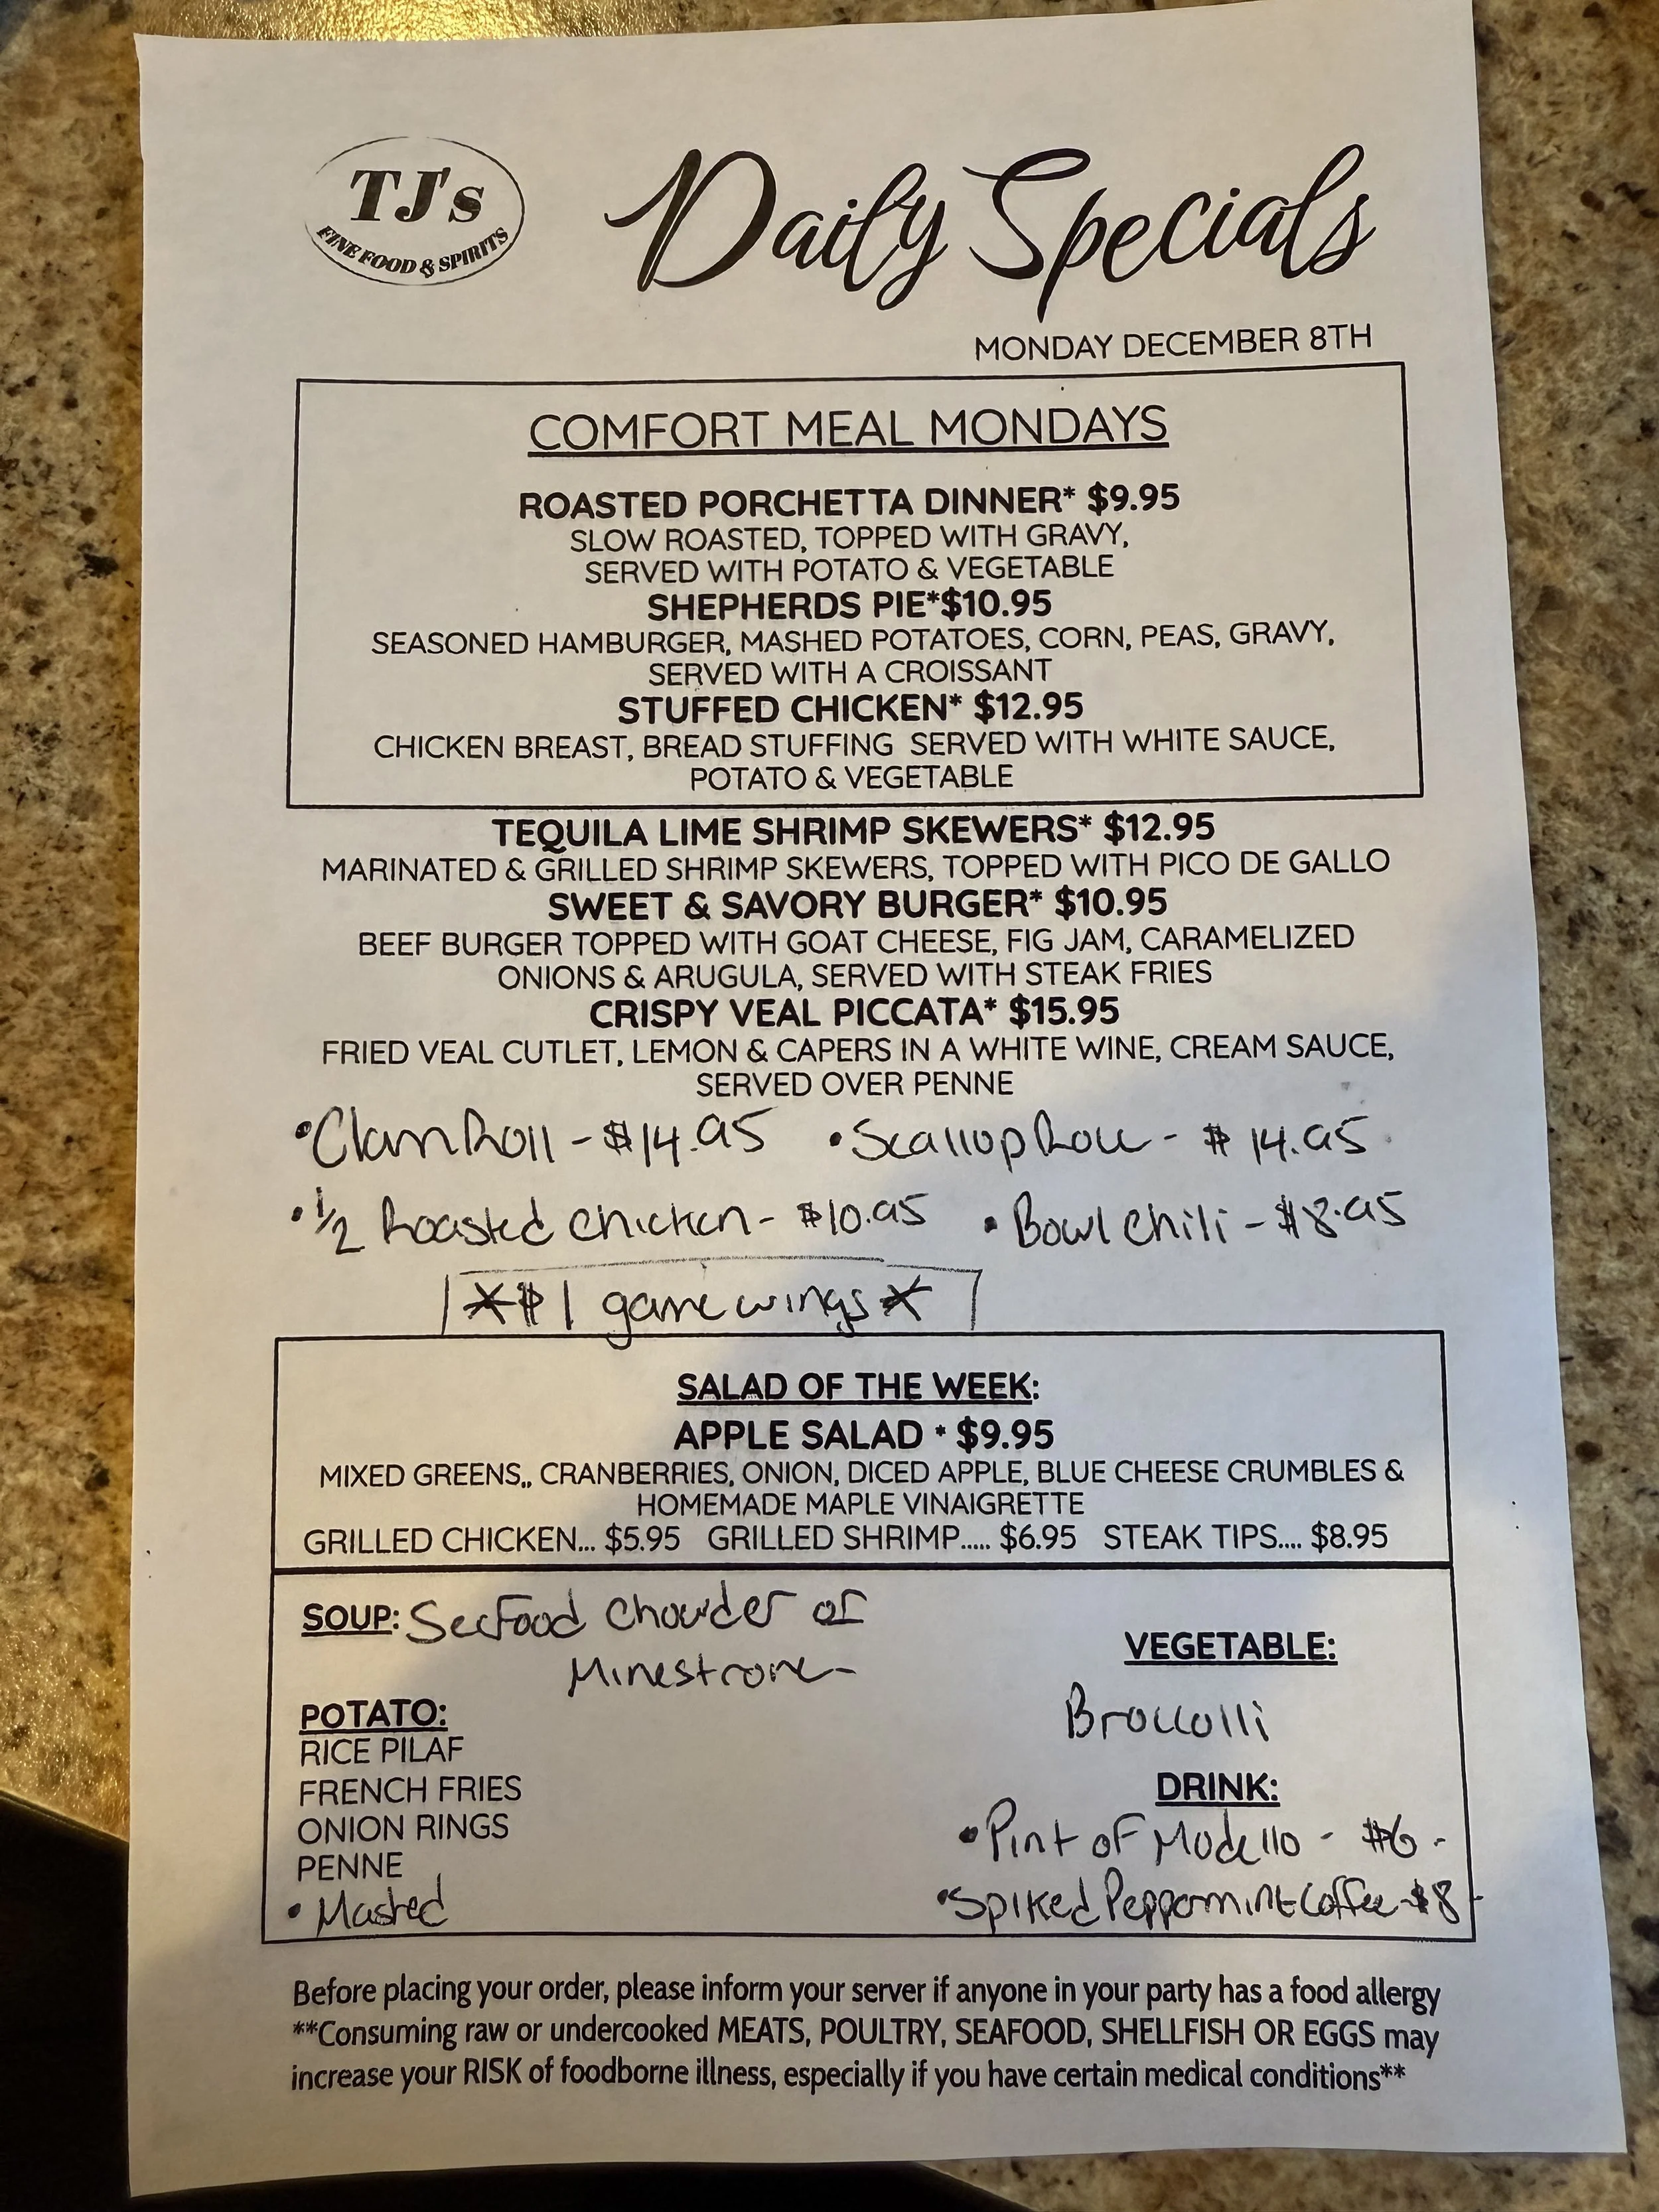 TJ's
FINE FOOD & SPIRITS
Daily Specials
MONDAY DECEMBER 8TH
COMFORT MEAL MONDAYS
ROASTED PORCHETTA DINNER* $9.95
SLOW ROASTED, TOPPED WITH GRAVY,
SERVED WITH POTATO & VEGETABLE
SHEPHERDS PIE*$10.95
SEASONED HAMBURGER, MASHED POTATOES, CORN, PEAS, GRAVY,
SERVED WITH A CROISSANT
STUFFED CHICKEN* $12.95
CHICKEN BREAST, BREAD STUFFING SERVED WITH WHITE SAUCE,
POTATO & VEGETABLE
TEQUILA LIME SHRIMP SKEWERS* $12.95
MARINATED & GRILLED SHRIMP SKEWERS, TOPPED WITH PICO DE GALLO
SWEET & SAVORY BURGER* $10.95
BEEF BURGER TOPPED WITH GOAT CHEESE, FIG JAM, CARAMELIZED
ONIONS & ARUGULA, SERVED WITH STEAK FRIES
CRISPY VEAL PICCATA* $15.95
FRIED VEAL CUTLET, LEMON & CAPERS IN A WHITE WINE, CREAM SAUCE,
SERVED OVER PENNE
•Clam Roll - $14.95 •Scallop Roll - $14.95
•1/2 Roasted Chicken - $10.95 •Bowl Chili - $8.95
*$1 game wings*
SALAD OF THE WEEK:
APPLE SALAD * $9.95
MIXED GREENS,, CRANBERRIES, ONION, DICED APPLE, BLUE CHEESE CRUMBLES &
HOMEMADE MAPLE VINAIGRETTE
GRILLED CHICKEN... $5.95 GRILLED SHRIMP..... $6.95 STEAK TIPS.... $8.95
SOUP: Seafood Chowder or
Minestrone-
POTATO:
RICE PILAF
FRENCH FRIES
ONION RINGS
PENNE
• Mashed
VEGETABLE:
Broccolli
DRINK:
•Pint of Modello - $6-
•Spiked Peppermint Coffee-$8-
Before placing your order, please inform your server if anyone in your party has a food allergy
**Consuming raw or undercooked MEATS, POULTRY, SEAFOOD, SHELLFISH OR EGGS may
increase your RISK of foodborne illness, especially if you have certain medical conditions**